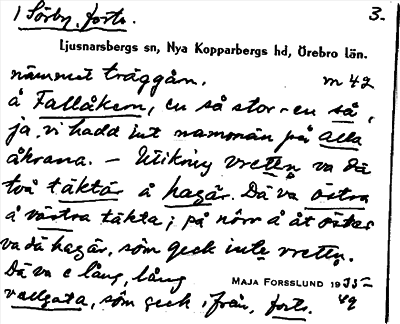 1 Sörby, forts. 3.
Ljusnarsbergs sn, Nya Kopparbergs hd, Örebro län.
nämmet träggån. m 42
å Fallåkern, en så stor-en så,
ja, vi hadd int nammän på alla
åkrana. – Utikring vretten va dä
två täktär å hagär. Dä va östra
å västra täkta; på nörr å åt öster
va dä hagär, söm geck inte vretten.
Dä va e lång, lång
MAJA FORSSLUND 1935–49
vallgata, söm geck ifrån, forts.